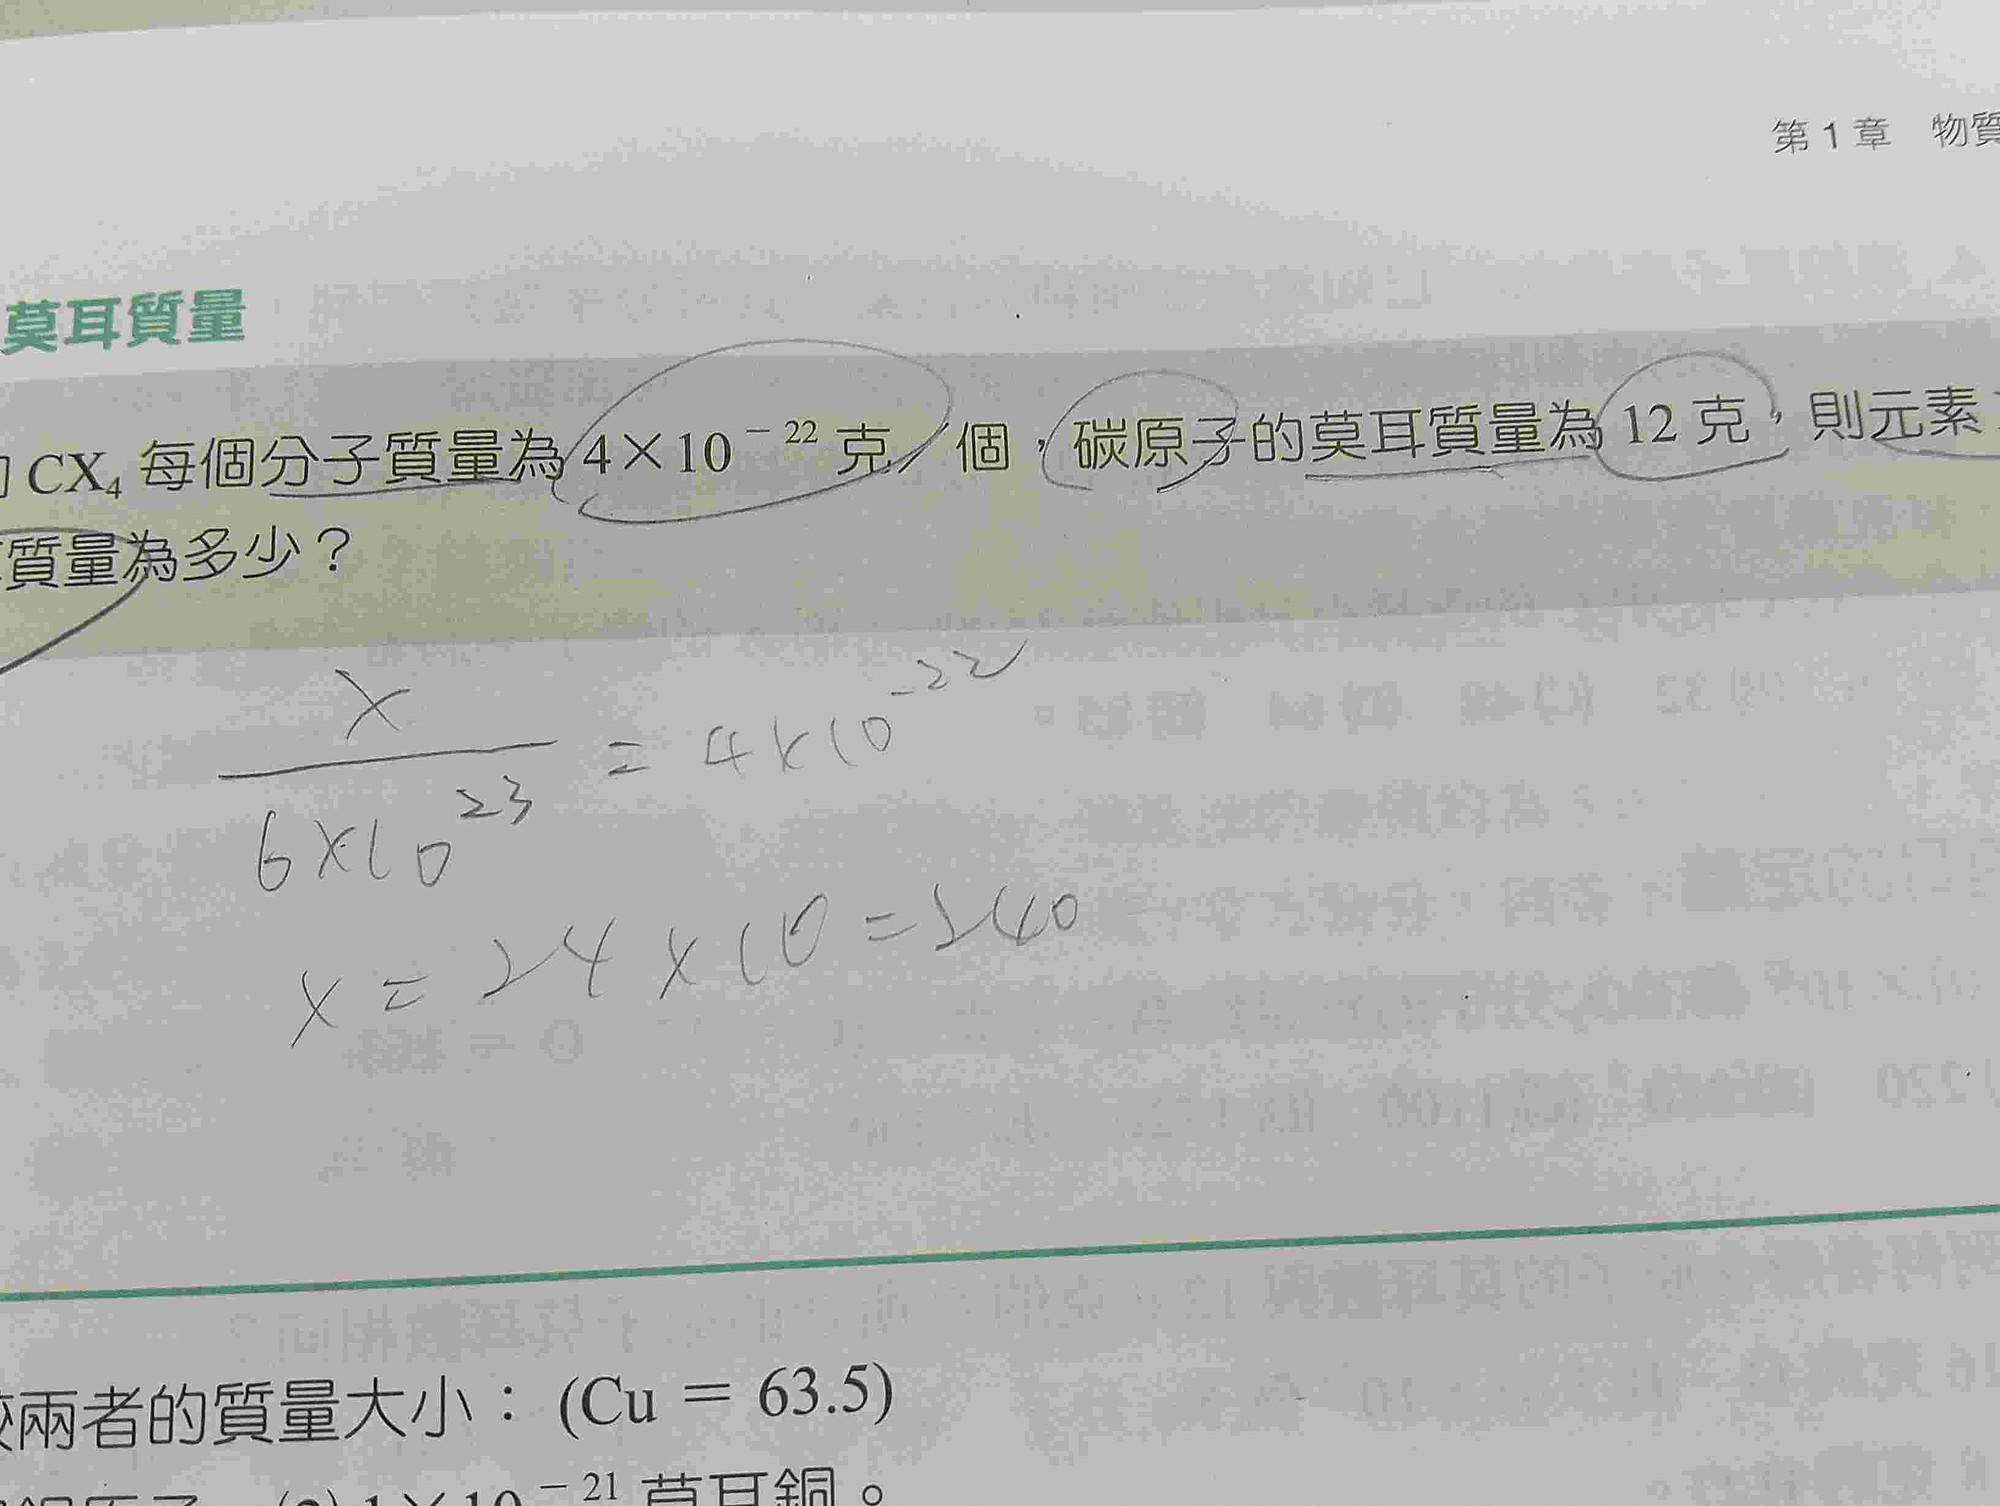 第1章 物質
莫耳質量
CX₄ 每個分子質量為 4×10⁻²² 克/個，碳原子的莫耳質量為 12 克，則元素
質量為多少？
x
6×10²³ = 4×10⁻²²
x = 24×10 = 240
兩者的質量大小：(Cu = 63.5)
(2) 1×10⁻²¹ 莫耳銅。